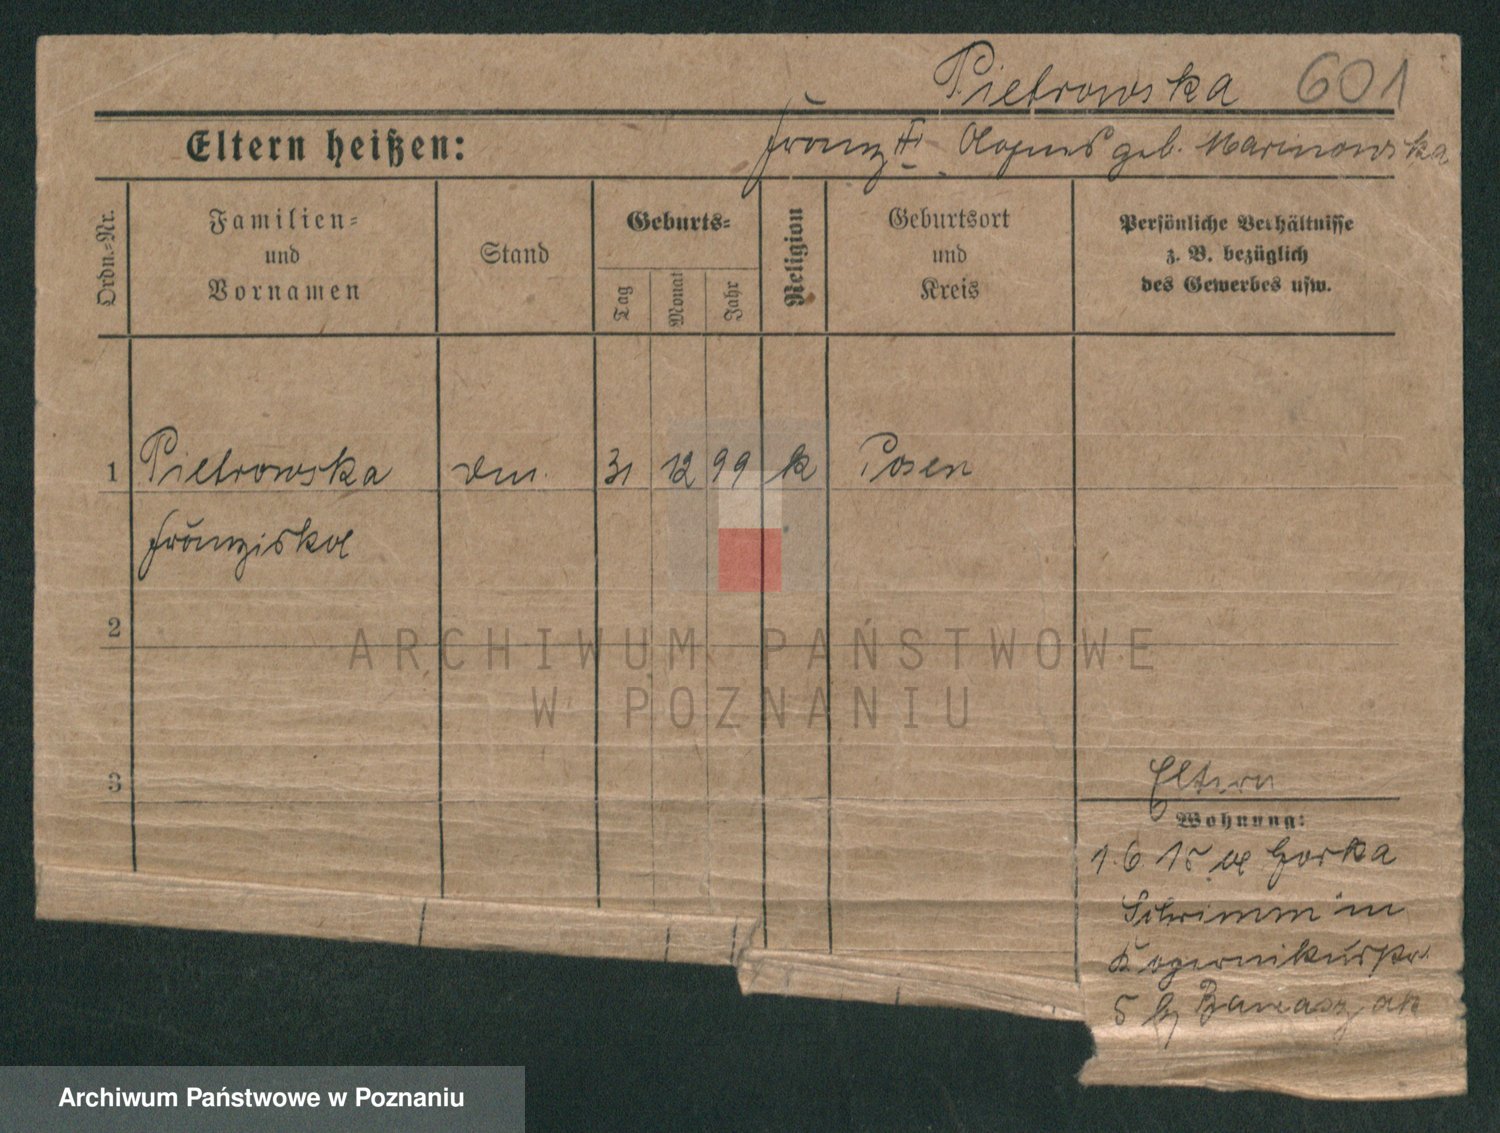 Pietrowska 601
Eltern heißen: Franz geb. Marinowska
Ordn.-Nr.
Familien-
und
Vornamen
Stand
Geburts-
Tag
Monat
Jahr
Religion
Geburtsort
und
Kreis
Persönliche Verhältnisse
z. B. bezüglich
des Gewerbes usw.
1 Pietrowska 31 12 99 k Posen
Franziska
2
ARCHIWUM PAŃSTWOWE
W POZNANIU
3
Eltern
Wohnung:
1.6.15 Gorka
Schrimm in
5
Archiwum Państwowe w Poznaniu